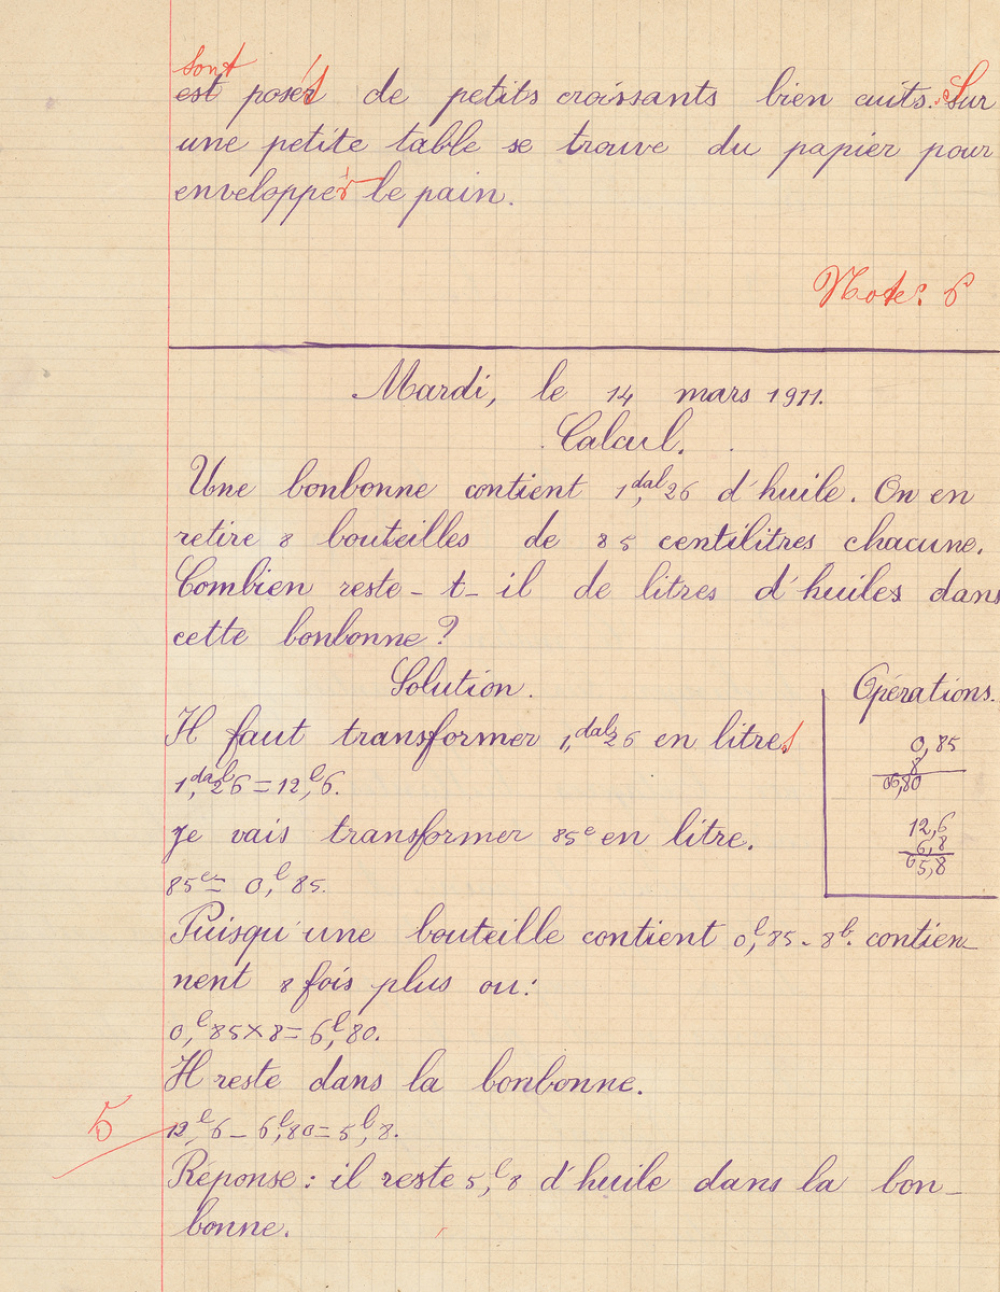 sont
est posés de petits croissants bien cuits. Sur
une petite table se trouve du papier pour
envelopper le pain.
Note: 6
Mardi, le 14 mars 1911.
Calcul.
Une bonbonne contient 1,dal26 d'huile. On en
retire 8 bouteilles de 85 centilitres chacune.
Combien reste-t-il de litres d'huiles dans
cette bonbonne?
Solution.
Opérations.
Il faut transformer 1,dal26 en litres
1,dal26=12,l6.
Je vais transformer 85c en litre.
85cl= 0,l85.
Puisqu'une bouteille contient 0,l85. 8b. contien
nent 8 fois plus ou:
0,l85×8=6,l80.
Il reste dans la bonbonne.
12,l6-6,l80=5,l8.
Réponse: il reste 5,l8 d'huile dans la bon-
bonne.
0,85
8
06,80
12,6
6,8
05,8
5